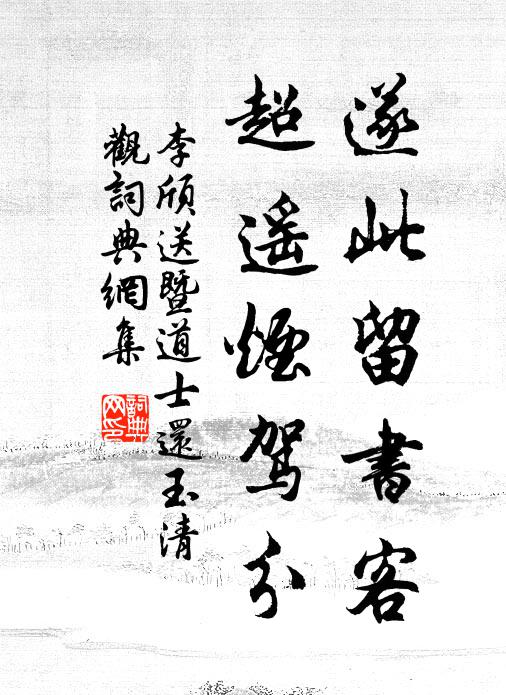 遂此留書客
超遥煙駕分
李頎送暨道士還玉清
觀詞典網集
詞典
网印